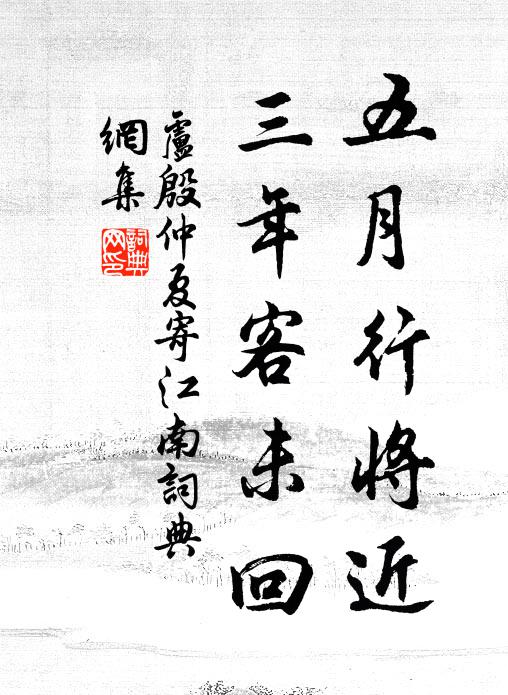 五月行將近
三年客未回
盧殷仲夏寄江南詞典
網集
詞典
网印